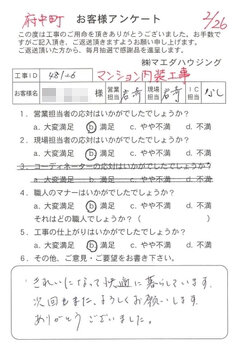 府中町 お客様アンケート 2/26
この度は工事のご用命を頂きありがとうございました。お手数で
すがご記入頂き、ご返送頂きますようお願い申し上げます。
ご返送頂いた方から、毎月抽選で感謝品を進呈します。
㈱マエダハウジング
工事ID 481-26 マンション内装工事
お客様名 様 営業担当 岩﨑 現場担当 岩﨑 IC担当 なし
1．営業担当者の応対はいかがでしたでしょうか？
a. 大変満足 b. 満足 c. やや不満 d. 不満
2．現場担当者の応対はいかがでしたでしょうか？
a. 大変満足 b. 満足 c. やや不満 d. 不満
3．コーディネーターの応対はいかがでしたでしょうか？
a. 大変満足 b. 満足 c. やや不満 d. 不満
4．職人のマナーはいかがでしたでしょうか？
a. 大変満足 b. 満足 c. やや不満 d. 不満
それはどの職人でしょうか？（ ）
5．工事の仕上がりはいかがでしたでしょうか？
a. 大変満足 b. 満足 c. やや不満 d. 不満
6．その他、ご意見・ご要望をお書き下さい。
きれいになって快適に暮らしています。
次回もまた、よろしくお願いします。
ありがとうございました。